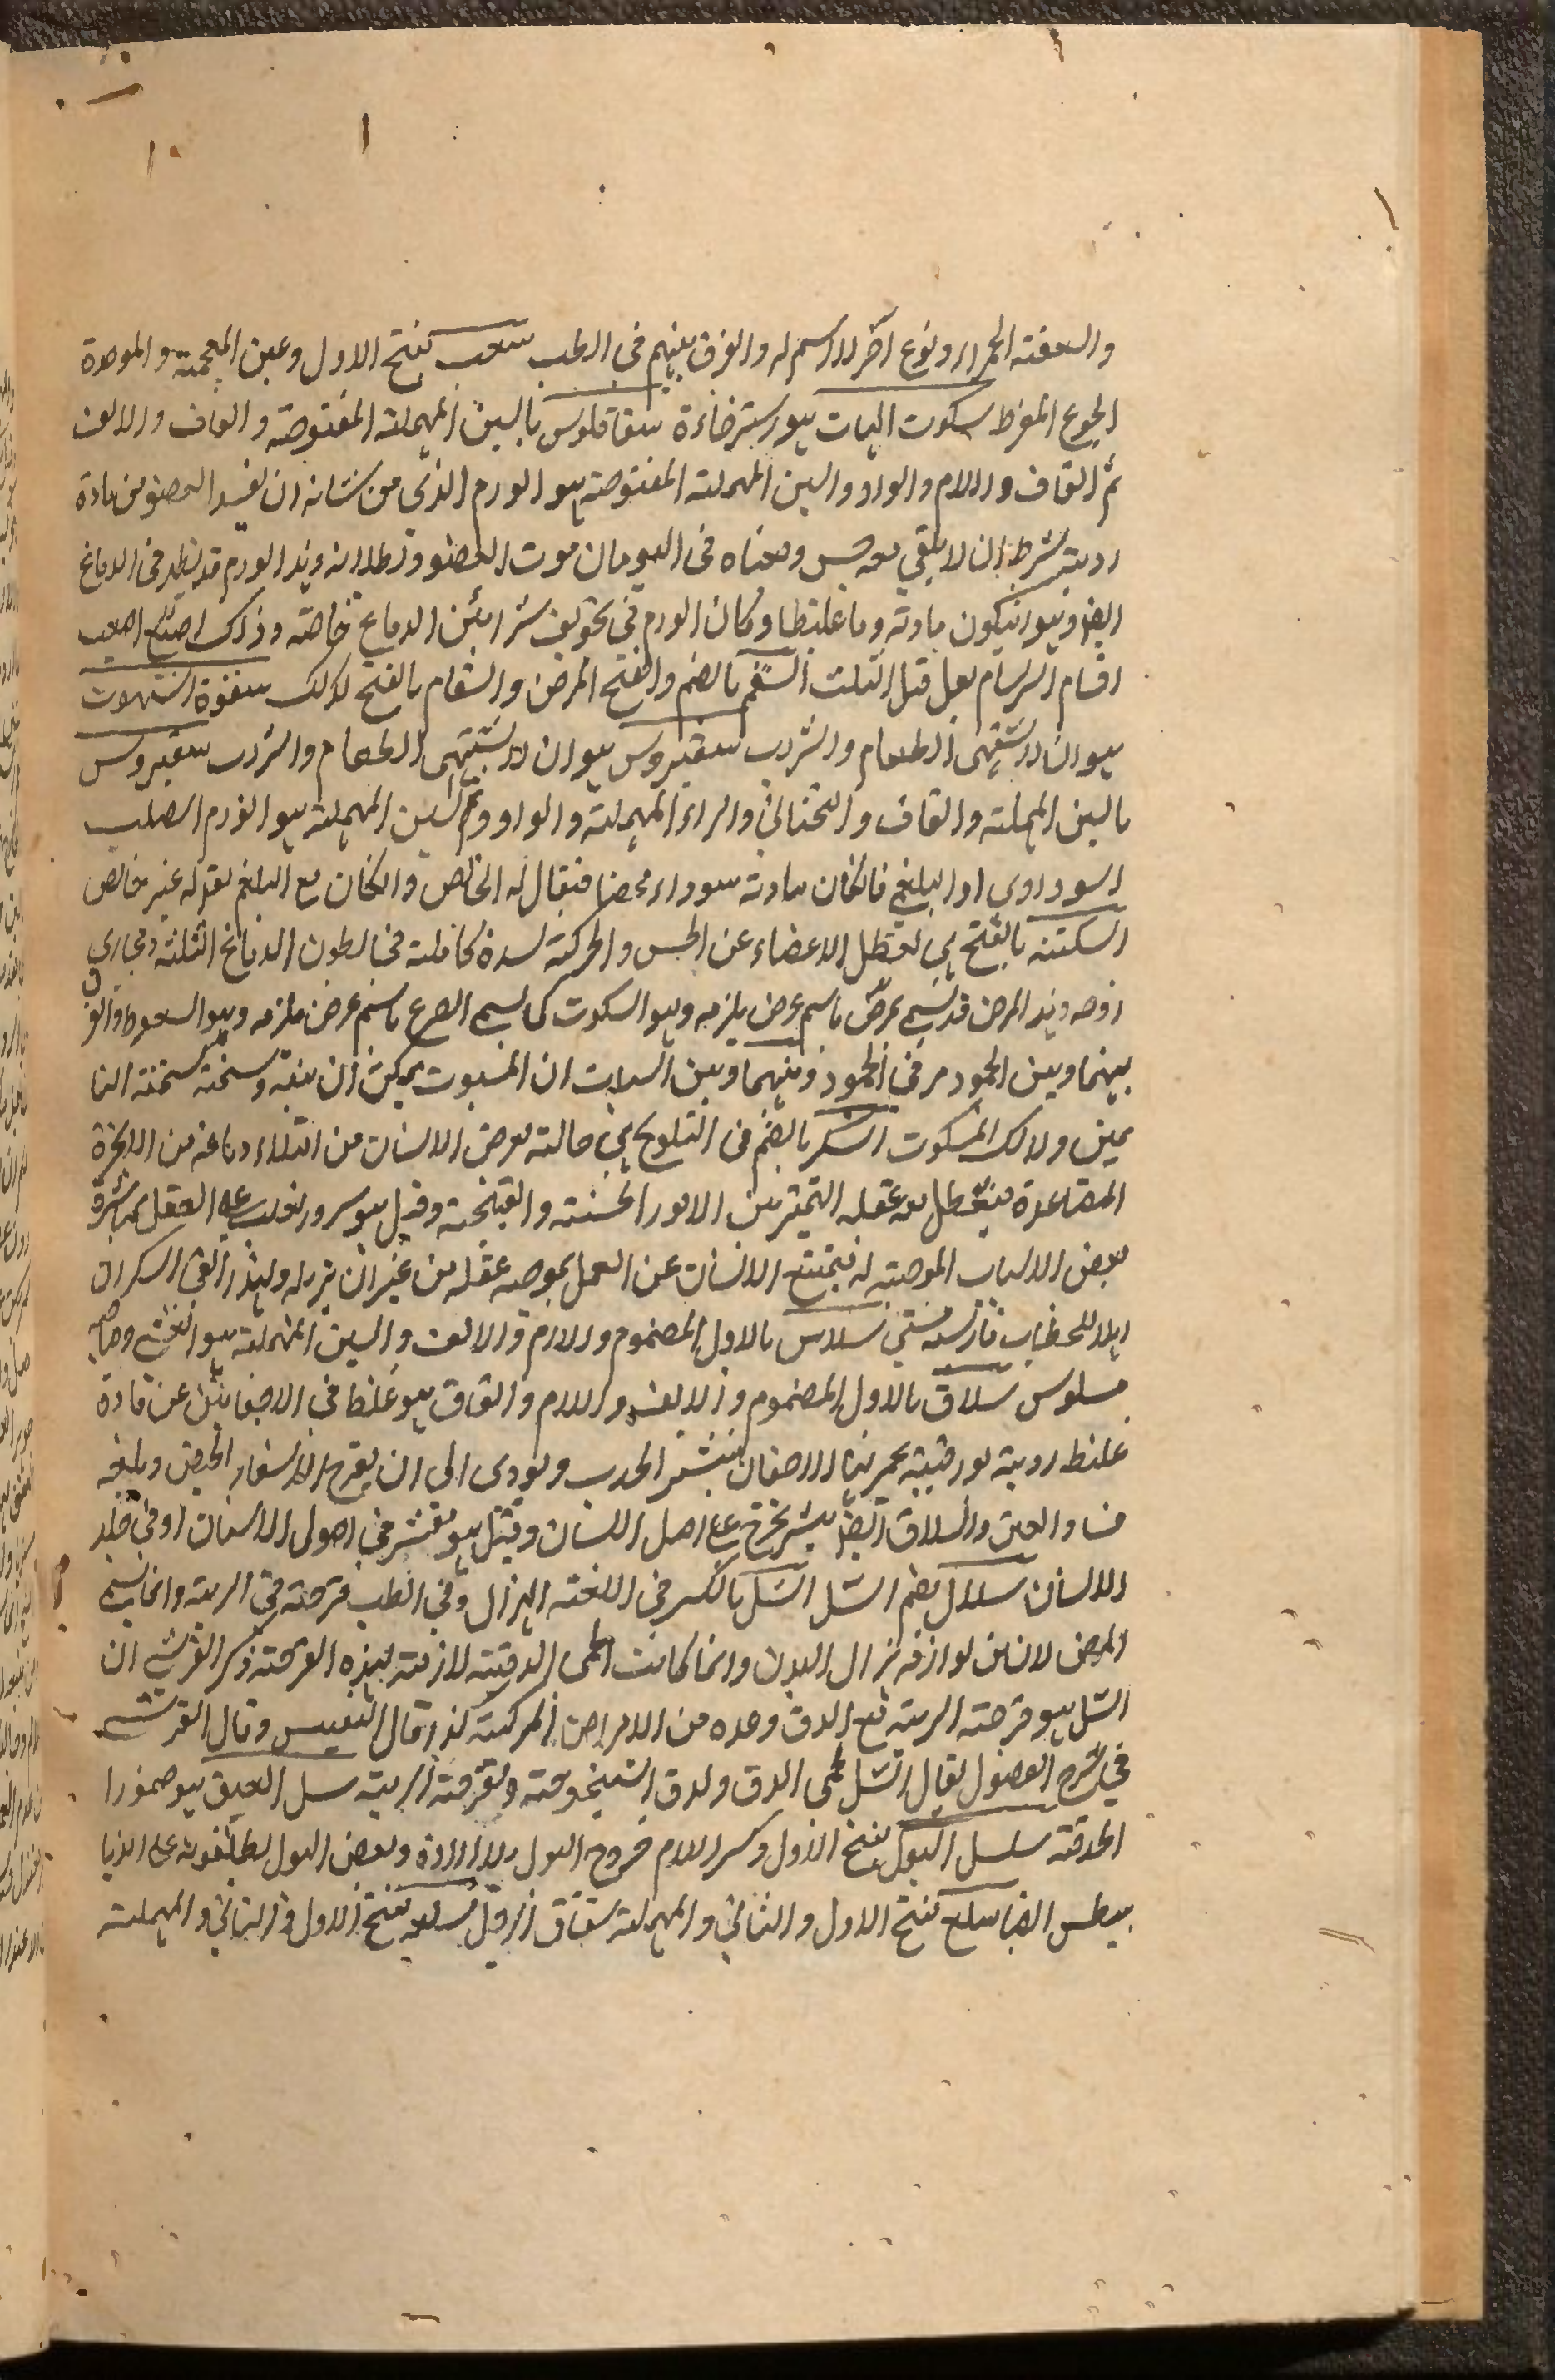 والسعفة الحمراء ونوع آخر لا اسم له والفرق بينهم فى الطب سغب بفتح الاول وغين المعجمة والموحدة
الجوع المفرط سكوت اللهات هو استرخاءه سقاقلوس بالسين المهملة المفتوحة والقاف والالف
ثم القاف واللام والواو والسين المهملة المفتوحة هو الورم الذى من شانه ان يفسد العضو من مادة
ردية بشرط ان لا يبقى معه حس ومعناه فى اليونان موت العضو وبطلانه وهذا الورم قد يظهر فى الدماغ
ايضا وهو ان يكون مادته دما غليظا وكان الورم فى تجويف شرائين الدماغ خاصة وذلك اصعب
اقسام السرسام يعل قبل الثلث السقم بالضم والفتح المرض والسقام بالفتح كذلك سقوة الشهوت
هو ان لا يشتهى الطعام والشراب سقيروس هو ان لا يشتهى الطعام والشراب سقيروس
بالسين المهملة والقاف والتحتانى والراء المهملة والواو ثم السين المهملة هو الورم الصلب
السوداوى او البلغمى فان كان مادته سوداء محضا فيقال له الخالص وان كان مع البلغم يقوله غير خالص
السكتة بالفتح هى تعطل الاعضاء عن الحس والحركة لسدة كاملة فى بطون الدماغ الثلثة ومجارى
روحه وهذا المرض قد يسمى بعرض باسم عرض يلزمه وهو السكوت كما يسمى الصرع باسم عرض يلزمه وهو السقوط والفرق
بينهما وبين الجمود مر فى الجمود وبينهما وبين السبات ان المسبوت يمكن ان ينبه وسحنته سحنة النا
يمين ولا كذلك المسكوت السكر بالضم فى التلويح هى حالة تعرض الانسان من امتلاء دماغه من الابخرة
المتصاعدة فيتعطل معه عقله التميز بين الامور الحسنة والقبيحة وقيل هو سرور يغلب على العقل بمباشرة
بعض الاسباب الموجبة له فيمتنع الانسان عن العمل بموجب عقله من غير ان يزيله ولهذا بقى السكران
اهلا للخطاب فارسيه مستى سلاس بالاول المضموم واللام والالف والسين المهملة هو الغشى وصاحبه
مسلوس سلاق بالاول المضموم والالف واللام والقاف هو غلظ فى الاجفان عن مادة
غليظ ردية بورقية يحمر لها الاجفان وينتثر الهدب ويودى الى ان يقرح الاشفار الجفن ويتبعه
فساد العين والسلاق ايضا بثر يخرج على اصل اللسان وقيل هو تقشر فى اصول الاسنان او فى جلد
اللسان سلال بضم السل السل بالكسر فى اللغة الهزال وفى الطب قرحة فى الرية وانما يسمى
المرض لان من لوازمه هزال البدن وانما كانت الحمى الدقية لازمة لهذه القرحة ذكر القرشى ان
السل هو قرحة الرية مع الدق وعده من الامراض المركبة كذا قال النفيس وقال القرشى
فى شرح الفصول يقال السل لحمى الدق ولدق الشيخوخة ولقرحة الرية سل العين هو ضمور
الحدقة سلسل البول بفتح الاول وكسر اللام خروج البول بلا ارادة وبعض البول يطلقونه على
 ايضا سلع بفتح الاول والثانى والمهملة شقاق القدم سلعه بفتح الاول والثانى والمهملة